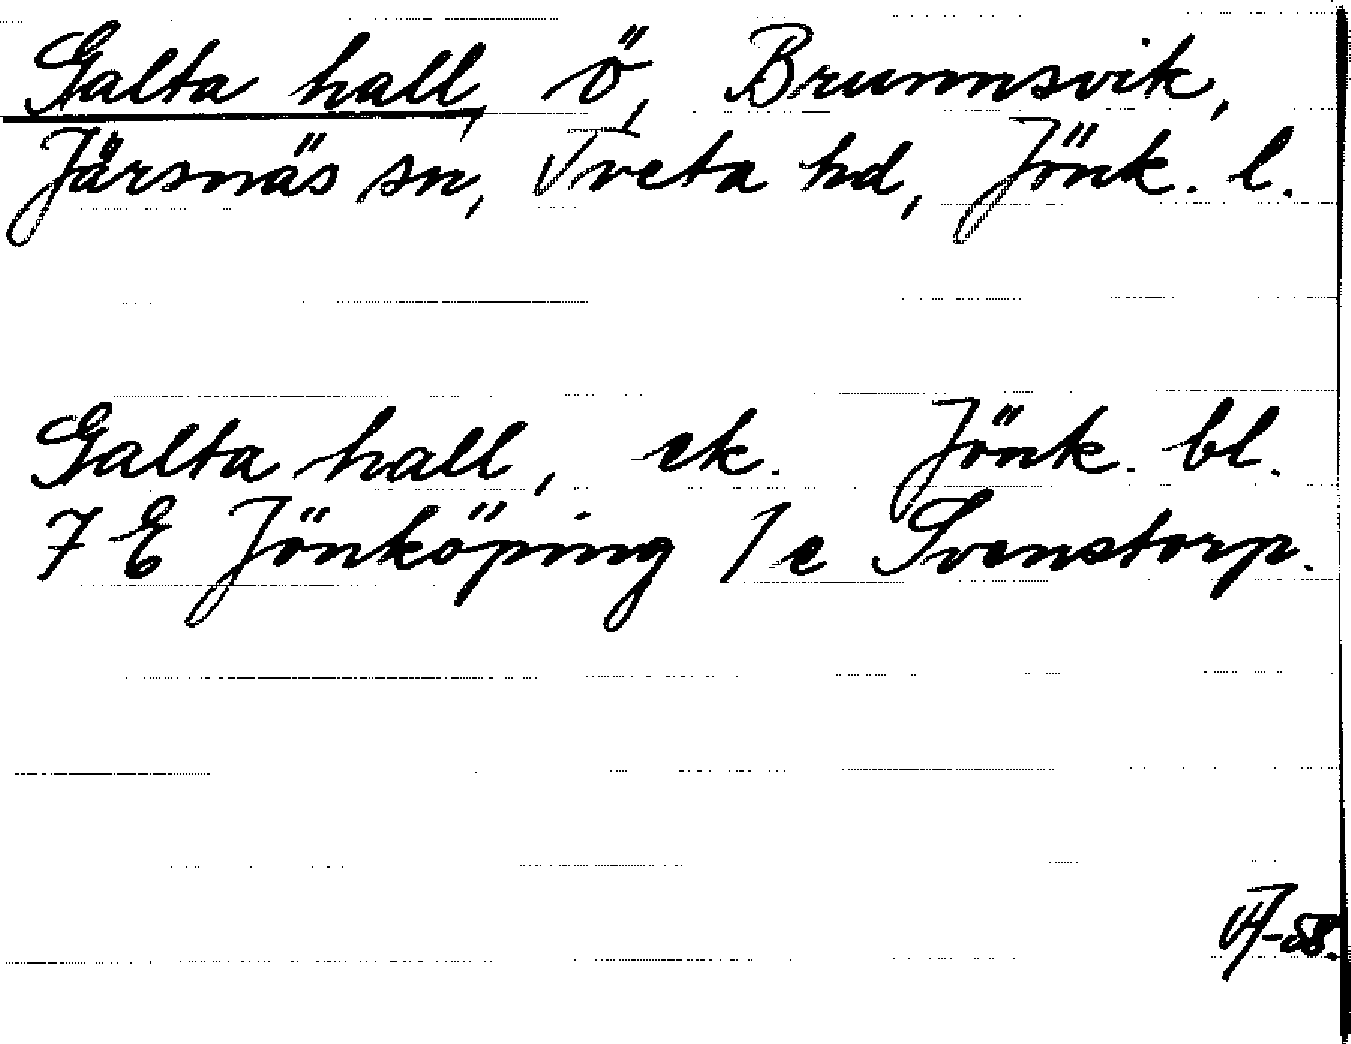 Galta hall, ö, Brunnsvik,
Järsnäs sn, Tveta hd, Jönk. l.
Galta hall, ek. Jönk. bl.
7 E Jönköping 1 e Svenstorp.